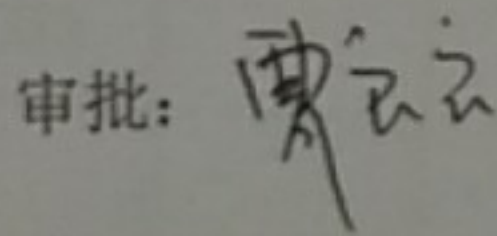 审批：贾云云